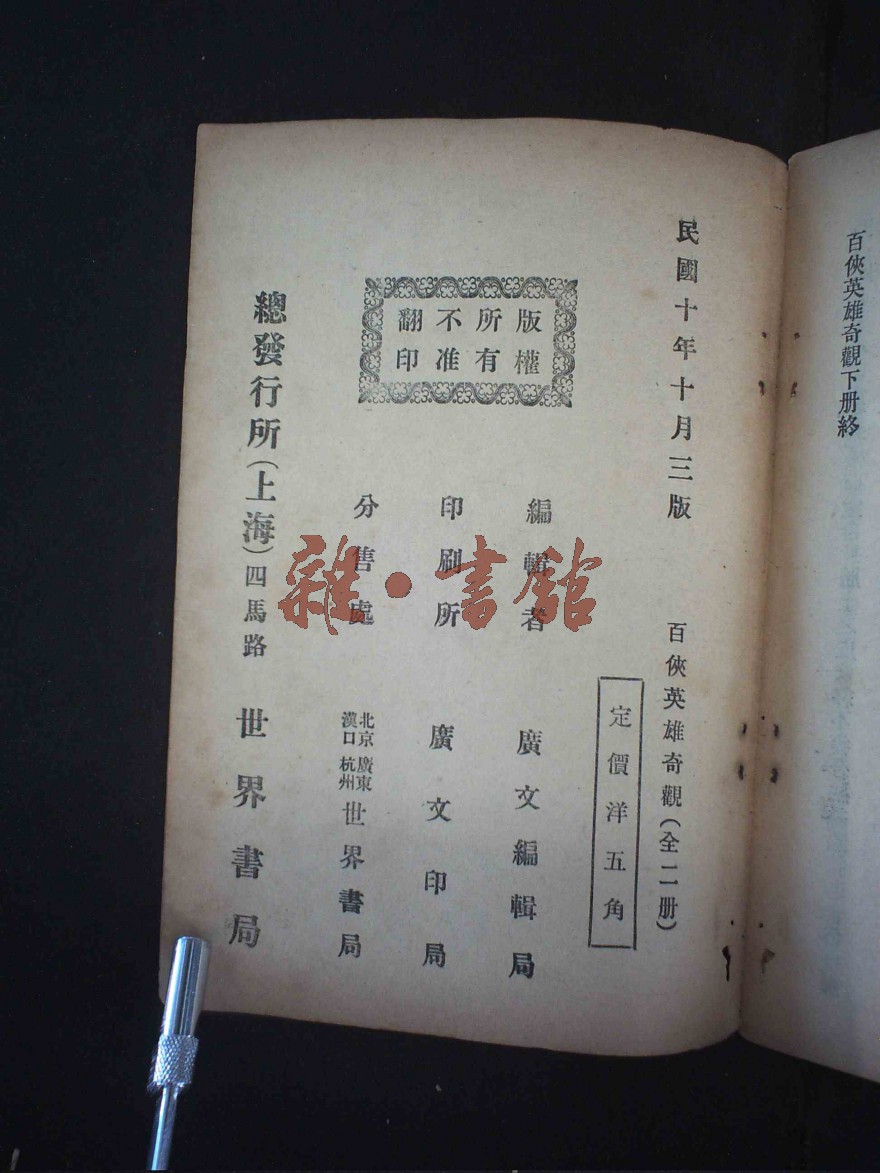 百俠英雄奇觀下册終
民國十年十月三版
百俠英雄奇觀(全二册)
定價洋五角
版權
所有
不准
翻印
編輯者 廣文編輯局
印刷所 廣文印局
分售處 北京 廣東 漢口 杭州 世界書局
總發行所(上海)四馬路 世界書局
雜·書館